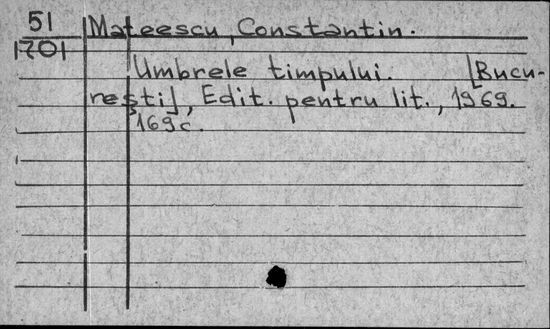 51
1701
Mateescu, Constantin.
Umbrele timpului. [Bucu-
rești], Edit. pentru lit., 1969.
169 c.